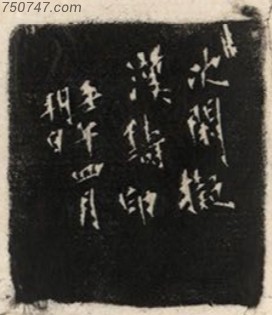 750747.com
次閑擬
漢鑄印
四月
朔日